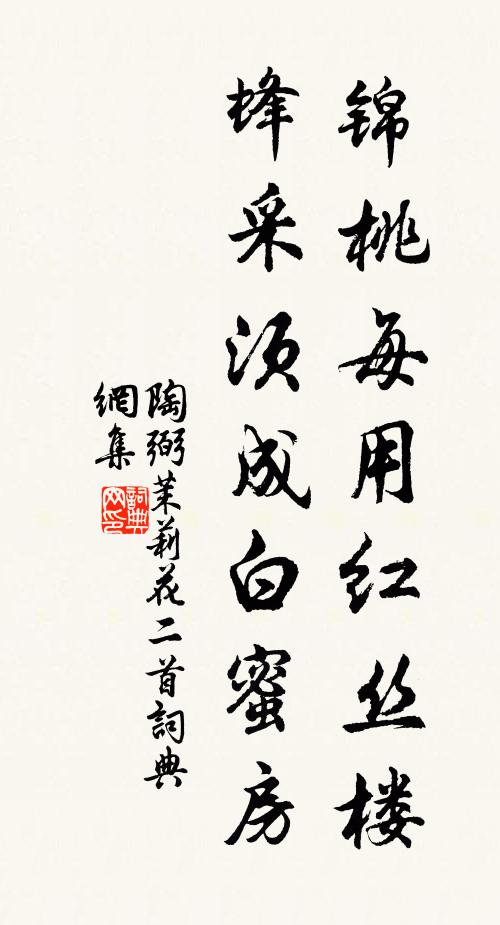 锦桃每用红丝楼
蜂采须成白蜜房
陶弼茉莉花二首詞典
網集
詞典网印